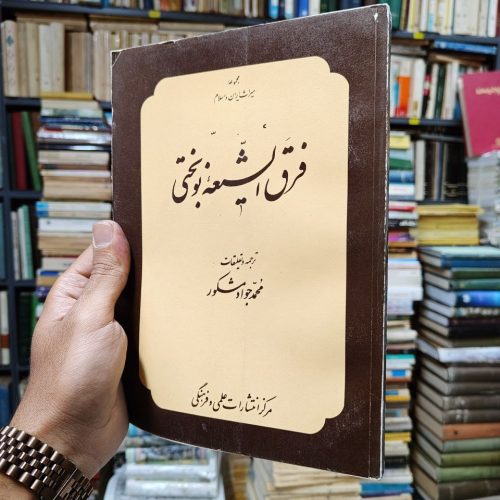 مجموعهٔ
میراث ایران و اسلام
فرق الشیعهٔ نوبختی
ترجمه و تعلیقات
محمّد جواد مشکور
مرکز انتشارات علمی و فرهنگی